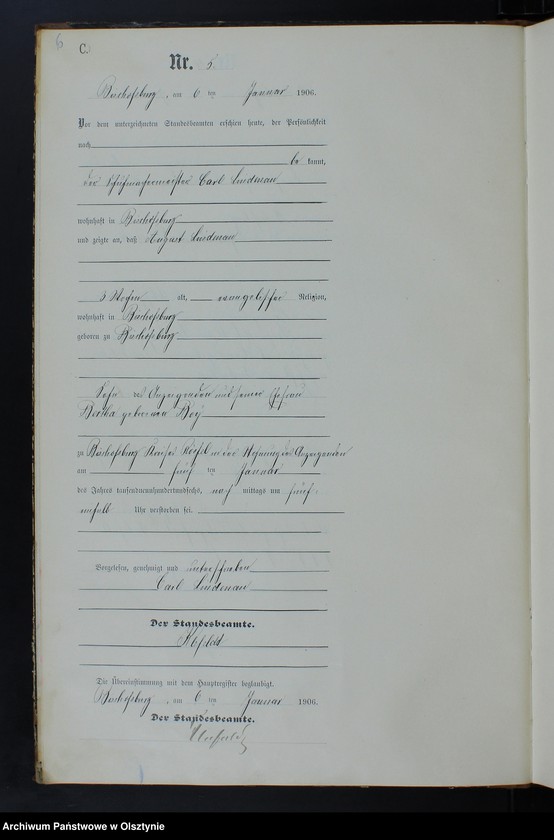 6
C.
Nr. 5
Bischofsburg, am 6 ten Januar 1906.
Vor dem unterzeichneten Standesbeamten erschien heute, der Persönlichkeit
nach
be kannt,
der Schuhmachermeister Carl Lindenau
wohnhaft in Bischofsburg
und zeigte an, daß August Lindenau
3 Wochen alt, evangelischer Religion,
wohnhaft in Bischofsburg
geboren zu Bischofsburg
Sohn des Anzeigenden und seiner Ehefrau
Bertha geborenen Boy
zu Bischofsburg Kreises Rössel in der Wohnung des Anzeigenden
am fünf ten Januar
des Jahres tausendneunhundertundsechs, nach mittags um fünf
einhalb Uhr verstorben sei.
Vorgelesen, genehmigt und unterschrieben
Carl Lindenau
Der Standesbeamte.
Die Übereinstimmung mit dem Hauptregister beglaubigt.
Bischofsburg, am 6 ten Januar 1906.
Der Standesbeamte.
Archiwum Państwowe w Olsztynie